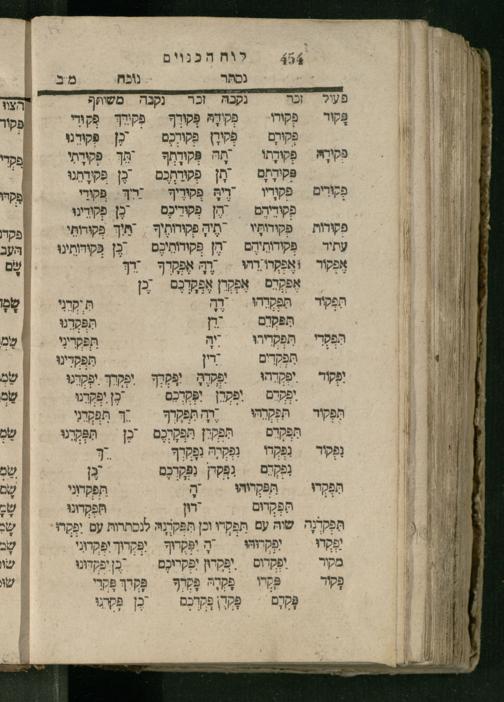 454 לוח הכנוים
נסתר נוכח מ ב
פעול זכר נקבה זכר נקבה משותף
פָּקוּד פְּקוּדוֹ פְּקוּדָהּ פְּקוּדְךָ פְּקוּדֵךְ פְּקוּדִי
פְּקוּדָם פְּקוּדָן פְּקוּדְכֶם ־כֶן פְּקוּדֵנוּ
פְּקוּדָה פְּקוּדָתוֹ ־תָהּ פְּקוּדָתְךָ ־תֵךְ פְּקוּדָתִי
פְּקוּדָתָם ־תָן פְּקוּדַתְכֶם ־כֶן פְּקוּדָתֵנוּ
פְּקוּדִים פְּקוּדָיו ־דֶיהָ פְּקוּדֶיךָ ־דַיִךְ פְּקוּדַי
פְּקוּדֵיהֶם ־הֶן פְּקוּדֵיכֶם ־כֶן פְּקוּדֵינוּ
פְּקוּדוֹת פְּקוּדוֹתָיו ־תֶיהָ פְּקוּדוֹתֶיךָ ־תַיִךְ פְּקוּדוֹתַי
עתיד פְּקוּדוֹתֵיהֶם ־הֶן פְּקוּדוֹתֵיכֶם ־כֶן פְּקוּדוֹתֵינוּ
אֶפְקוֹד אֶפְקְדוֹ־דֵהוּ ־דָהּ אֶפְקָדְךָ ־דֵךְ
אֶפְקְדֵם אֶפְקְדֵן אֶפְקָדְכֶם ־כֶן
תִּפְקוֹד תִּפְקְדֵהוּ ־דָהּ תִּפְקְדֵנִי
תִּפְקְדֵם ־דֵן תִּפְקְדֵנוּ
תִּפְקְדִי תִּפְקְדִיהוּ ־יהָ תִּפְקְדִינִי
תִּפְקְדִים ־דִין תִּפְקְדִינוּ
יִפְקוֹד יִפְקְדֵהוּ יִפְקְדָהּ יִפְקָדְךָ יִפְקְדֵךְ יִפְקְדֵנוּ
יִפְקְדֵם יִפְקְדֵן יִפְקָדְכֶם ־כֶן יִפְקְדֵנוּ
תִּפְקוֹד תִּפְקְדֵהוּ ־דָהּ תִּפְקָדְךָ ־ךְ תִּפְקְדֵנִי
תִּפְקְדֵם תִּפְקְדֵן תִּפְקָדְכֶם ־כֶן תִּפְקְדֵנוּ
נִפְקוֹד נִפְקְדוֹ נִפְקְדָהּ נִפְקָדְךָ ־ךְ
נִפְקְדֵם נִפְקְדֵן נִפְקָדְכֶם ־כֶן
תִּפְקְדוּ תִּפְקְדוּהוּ ־הָ תִּפְקְדוּנִי
תִּפְקְדוּם ־דוּן תִּפְקְדוּנוּ
תִּפְקֹדְנָה שוה עם תִּפְקְדוּ וכן תִּפְקֹדְנָה לנסתרות עם יִפְקְדוּ
יִפְקְדוּ יִפְקְדוּהוּ ־הָ יִפְקְדוּךָ יִפְקְדוּךְ יִפְקְדוּנִי
מקור יִפְקְדוּם יִפְקְדוּן יִפְקְדוּכֶם ־כֶן יִפְקְדוּנוּ
פָּקוֹד פָּקְדוֹ פָּקְדָהּ פָּקְדְךָ פָּקְדֵךְ פָּקְדִי
פָּקְדָם פָּקְדָן פָּקְדְכֶם ־כֶן פָּקְדֵנוּ